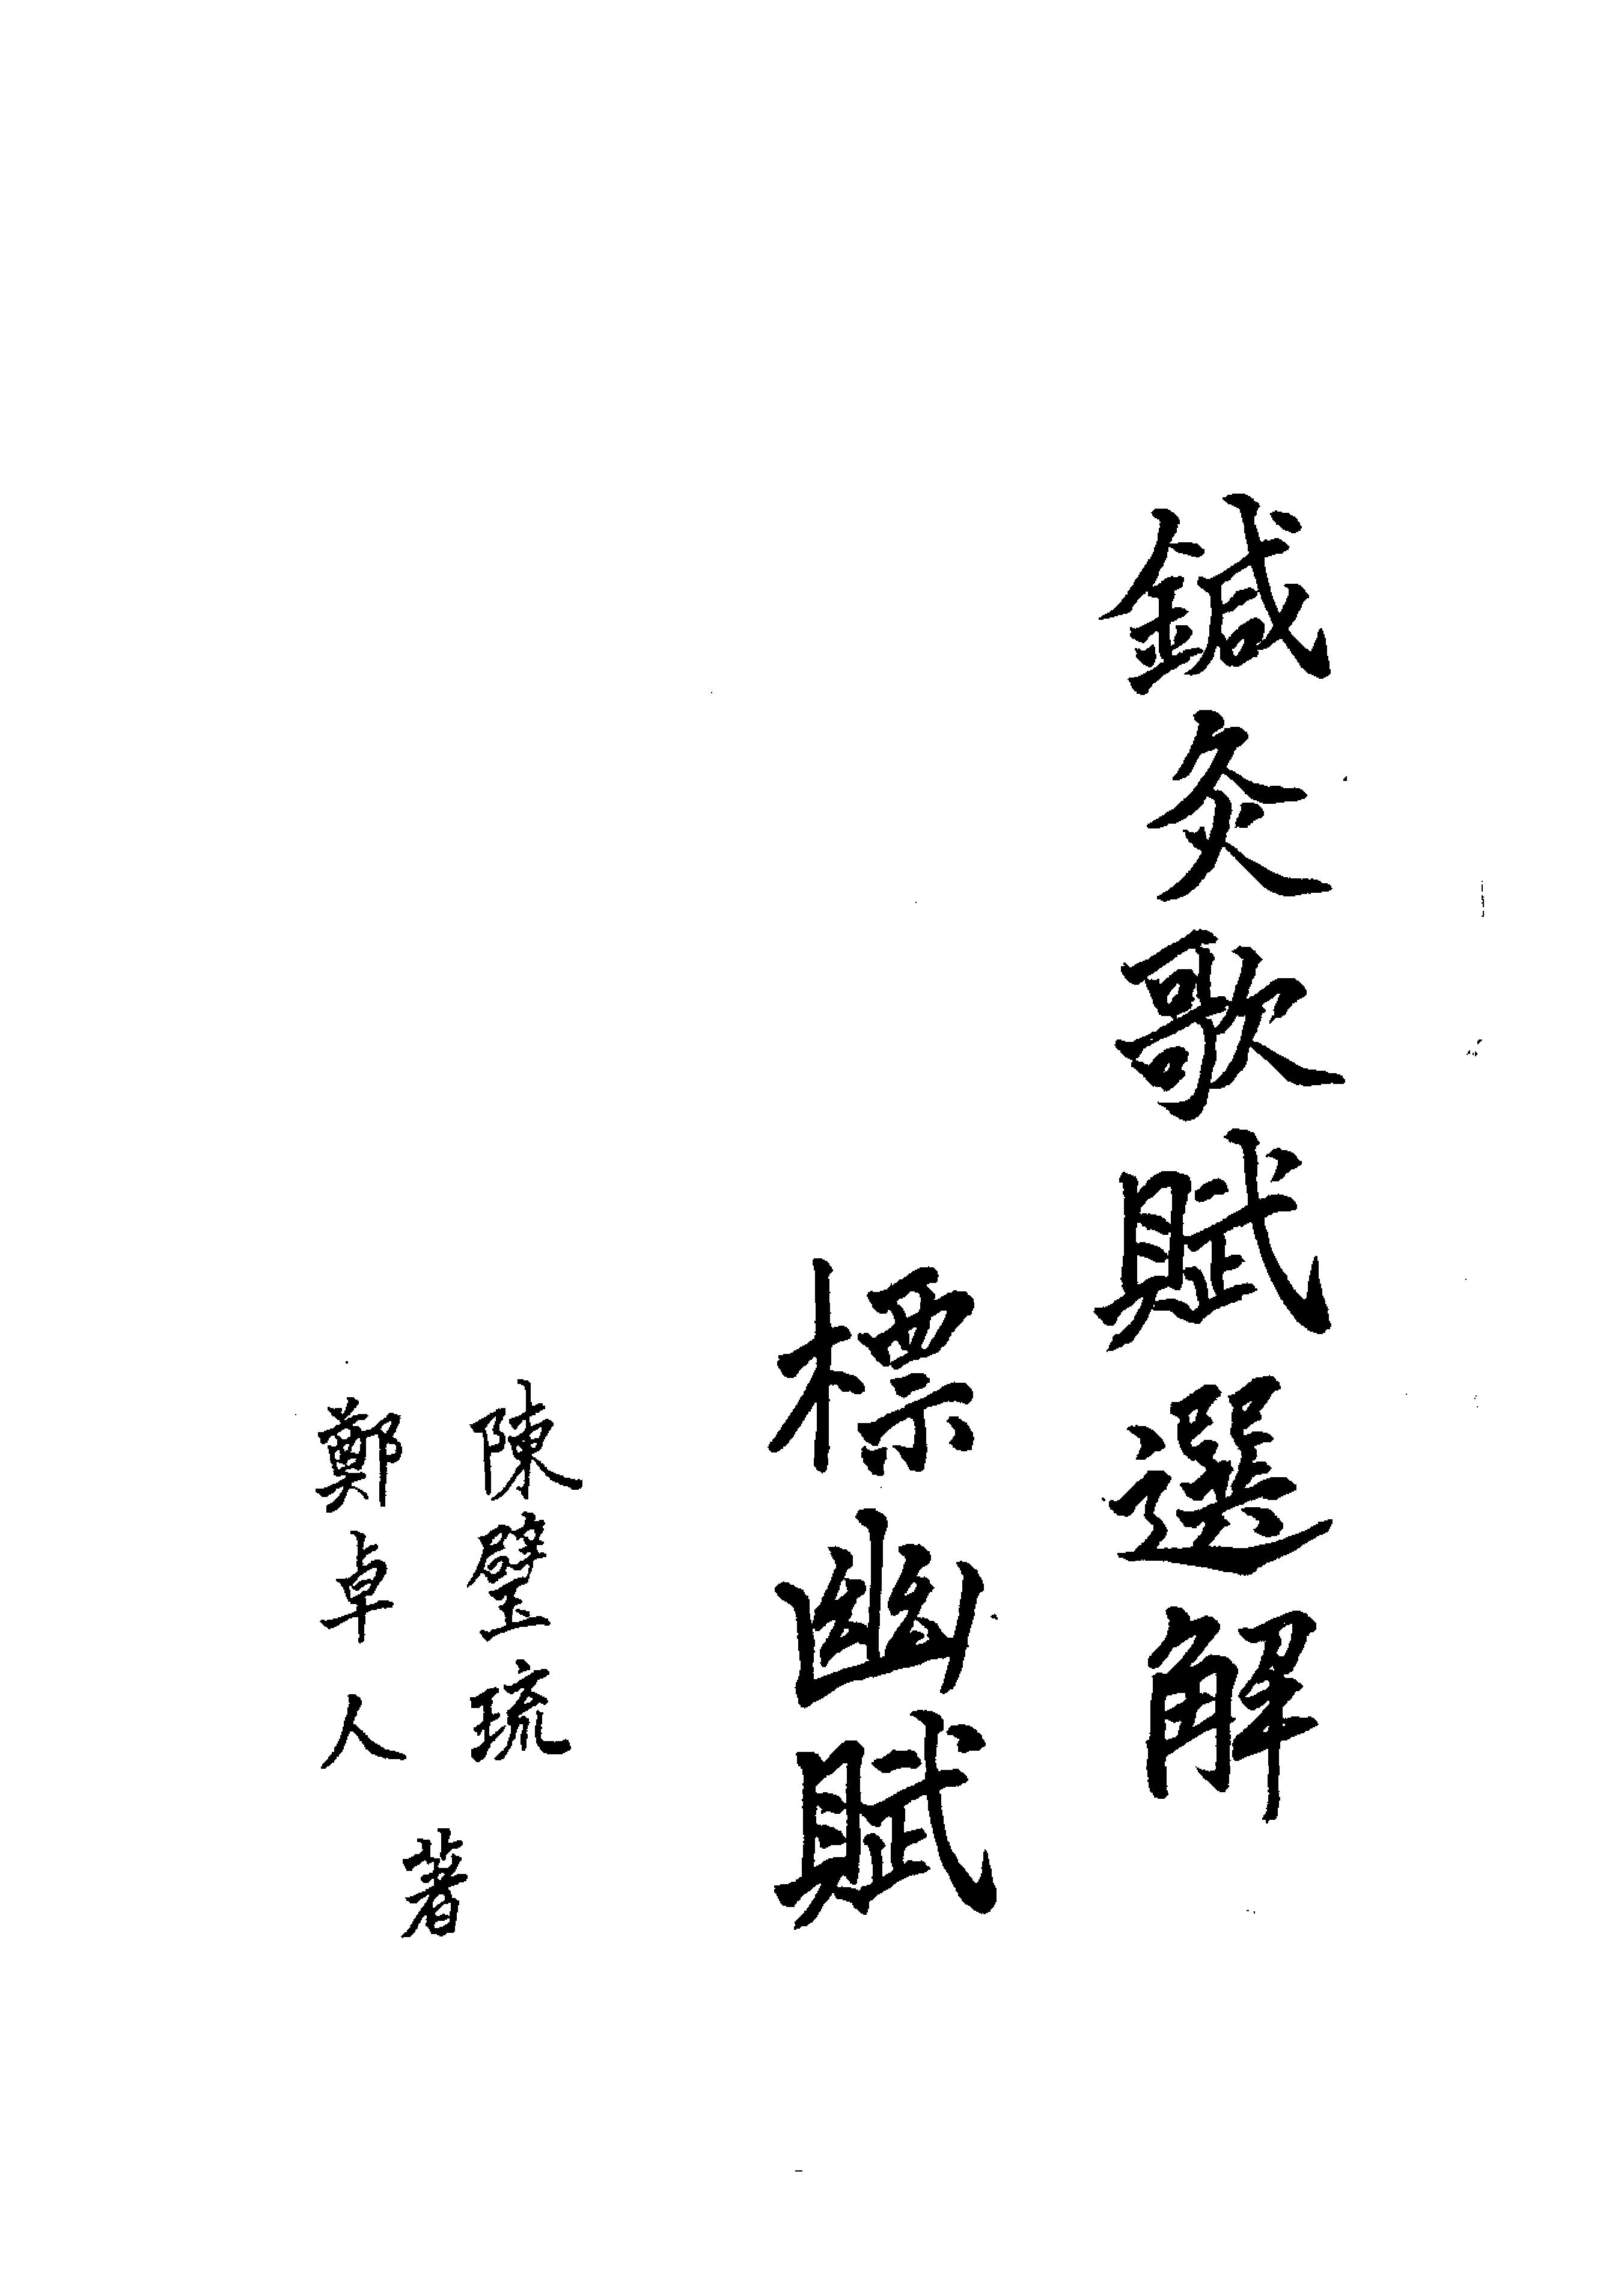 鍼灸歌賦選解
標幽賦
陳璧琉
鄭卓人
著